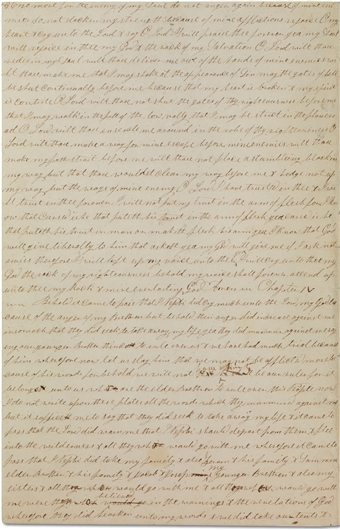 place no more for the enemy of my soul do not anger again because of mine ene
mies do not slacken my strength because of mine afflictions rejoice O my
heart & cry unto the Lord & say O Lord I will praise thee forever yea my Soul
will rejoice in thee my God & the rock of my Salvation O Lord wilt thou
redeem my Soul wilt thou deliver me out of the hands of mine enemies wi
lt thou make me that I may shake at the appearance of Sin may the gates of hell
be shut continually before me because that my heart is broken & my spirit
is contrite O Lord wilt thou not shut the gates of thy righteousness before me
that I may walk in the path of the low vally that I may be strict in the plain ro
ad O Lord wilt thou encircle me around in the robe of thy righteousness O
Lord wilt thou make a way for mine escape before mine enemies wilt thou
make my path strait before me wilt thou not place a stumbling block in
my way but that thou wouldst clear my way before me & hedge not up
my way but the ways of mine enemy O Lord I have trusted in thee & I wi
ll trust in thee forever I will not put my trust in the arm of flesh for I kn
ow that Cursed is he that putteth his trust in the arm of flesh yea cursed is he
that putteth his trust in man or maketh flesh his arm yea I know that God
will give liberally to him that asketh yea my God will give me if I ask not
amiss therefore I will lift up my voice unto thee yea I will cry unto thee my
God the rock of my righteousness behold my voice shall forever assend up
unto thee my Rock & mine everlasting God amen Chapter IV
Behold it came to pass that I Nephi did cry much unto the Lord my God be
cause of the anger of my Brethren but behold their anger did increase against me
insomuch that they did seek to take away my life yea they did murmur against me say
ing our younger Brother thinks to rule over us & we have had much trial because
of him wherefore now let us slay him that we may not be afflicted more be
cause of his words for behold we will not have him to be our ruler for it
belongs unto us who are the elder Brethren to rule over this People now
I do not write upon these plates all the words which they murmured against me
but it sufficeth me to say that they did seek to take away my life & it came to
pass that the Lord did warn me that I Nephi should depart from them & flee
into the wilderness & all they which would go with me wherefore it came to
pass that I Nephi did take my family & also Zoram & his family & Sam mine
elder Brother & his family & Jacob & Joseph my younger Brethren & also my
sisters & all they which would go with me & all they which would go with
me were they which believed in the warnings & the revelations of God
wherefore they did hearken unto my words & we did take our tents &